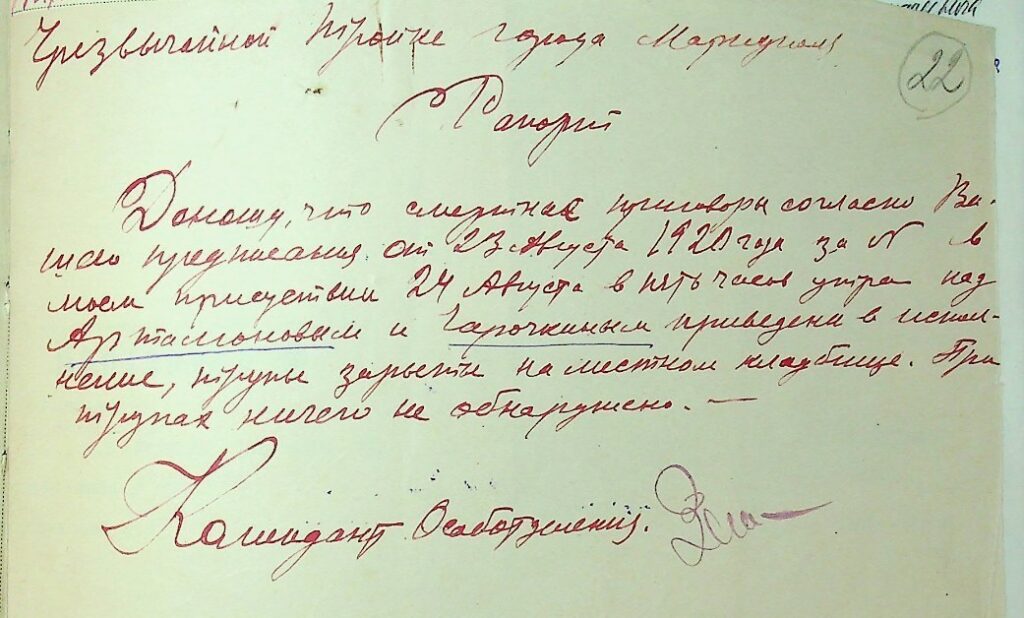 22
Чрезвычайной тройке города Мариуполя
Рапорт
Доношу, что смертная приговоры согласно Ва-
шего предписания от 23 Августа 1920 года за N в
моем присуствии 24 Августа в пять часов утра над
Артамоновым и Чарочкиным приведены в испол-
нение, трупы зарыты на местном кладбище. При
трупах ничего не обнаружено. —
Комендант Особотделения.